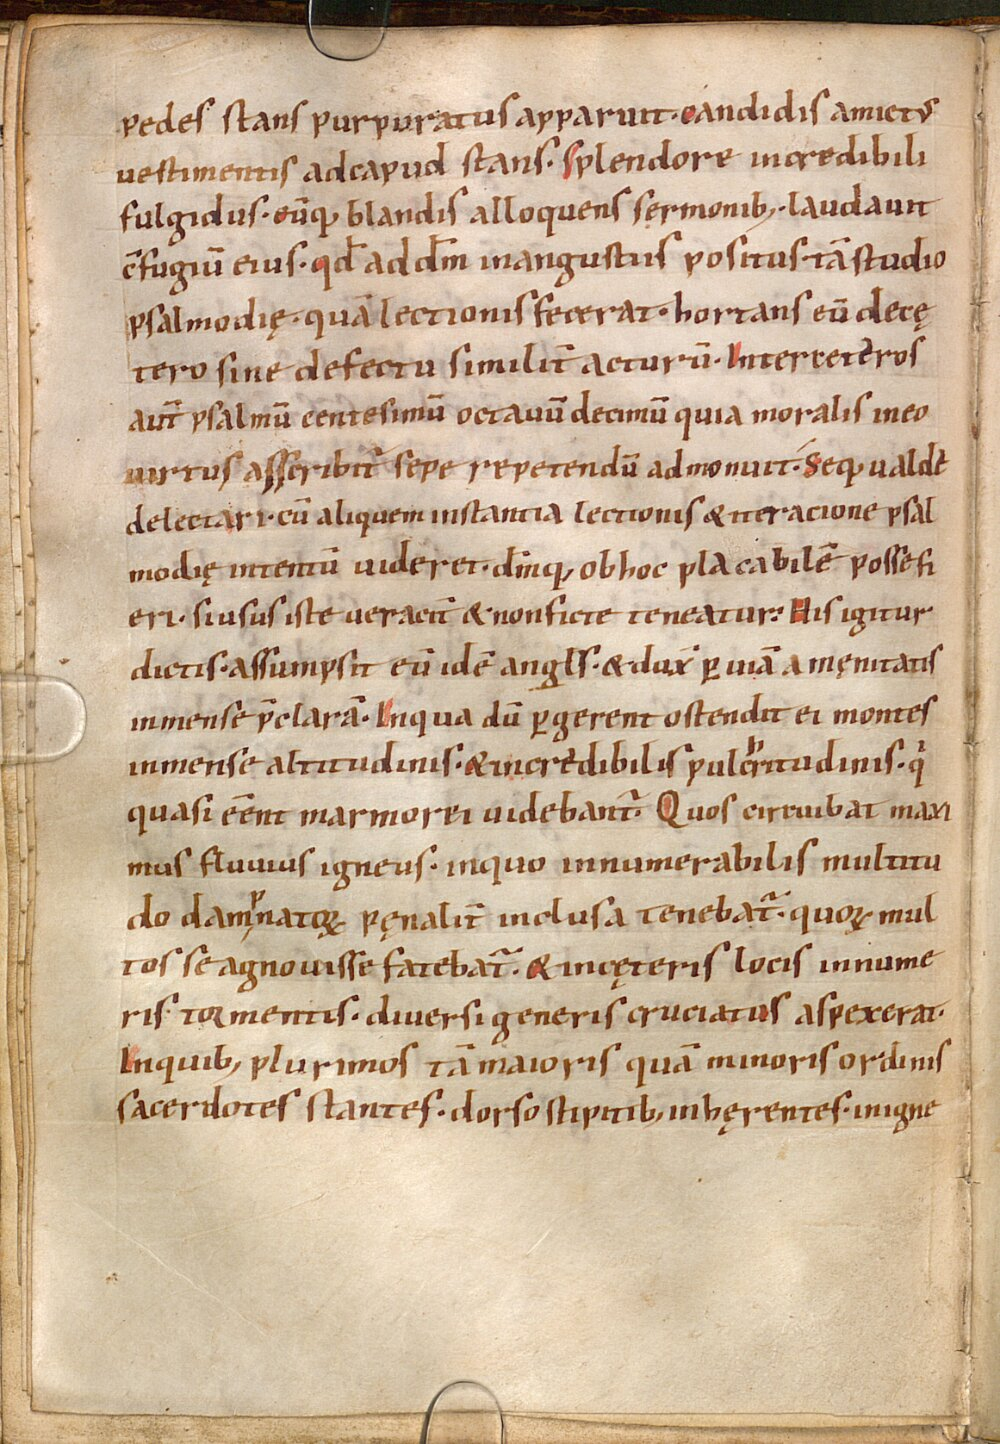 pedes stans purpuratus apparuit · candidis amictus
uestimentis adcapud stans · Splendore incredibili
fulgidus · eūq; blandis alloquens sermonib; · laudauit
c̄fugiū eius · qd̄ ad dm̄ inangustiis positus · tā studio
psalmodię · quā lectionis fecerat · hortans eū decę
tero sine defectu similit̄ acturū · Inter ceteros
aut̄ psalmū centesimū octauū decimū quia moralis ineo
uirtus asscribit̄ sepe repetendū admonuit · Seq; ualde
delectari cū aliquem instantia lectionis & iteracione psal
modię intentū uideret · dm̄q; obhoc placabilē posse fi
eri · si usus iste ueracit̄ & nonficte teneatur · His igitur
dictis · assumpsit eū idē angls̄ · & dux̄ ꝑ uiā amęnitatis
inmense p̄clarā · Inqua dū ꝑgerent ostendit ei montes
inmense altitudinis · & incredibilis pulcritudinis · qͥ
quasi ēent marmorei uidebant̄ · Quos circuibat maxi
mus fluuius igneus · inquo innumerabilis multitu
do dampnatoꝝ pęnalit̄ inclusa tenebat̄ · quoꝝ mul
tos se agnouisse fatebat̄ · & incęteris locis innume
ris tormentis · diuersi generis cruciatus aspexerat ·
Inquib; plurimos tā maioris quā minoris ordinis
sacerdotes stantes · dorso stipitib; inhęrentes · inigne